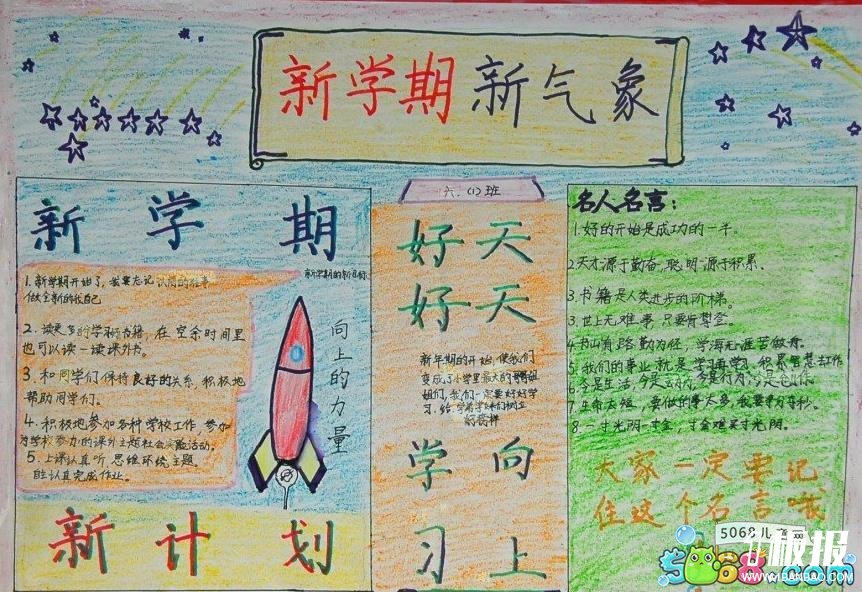 新学期 新气象
新 学 期
新学期的新目标
1.新学期开始了,我要忘记以前的往事
做全新的我自己
2.读更多的学习书籍,在空余时间里
也可以读一读课外书。
3.和同学们保持良好的关系,积极地
帮助同学们。
4.积极地参加各种学校工作,参加
学校参办的课外主题社会实践活动。
5.上课认真听,思维环绕主题
认真完成作业。
向上的力量
新 计 划
六.(1)班
好 天
好 天
新年期的开始,使我们
变成了小学里最大的哥哥姐
姐们,我们一定要好好学
习.给学弟学妹们树立
的榜样
学 向
习 上
名人名言:
1.好的开始是成功的一半。
2.天才源于勤奋,聪明源于积累。
3.书籍是人类进步的阶梯。
3.世上无难事,只要肯登登。
4.书山有路勤为径,学海无涯苦做舟。
5.我们的事业就是学习再学习,积累智慧去工作
7.生命太短,要做的事太多,我要争分夺秒。
8.一寸光阴一寸金,寸金难买寸光阴。
大家一定要记
住这个名言哦
5068儿童网
5068.com
板报
WWW.1BANBAO.COM